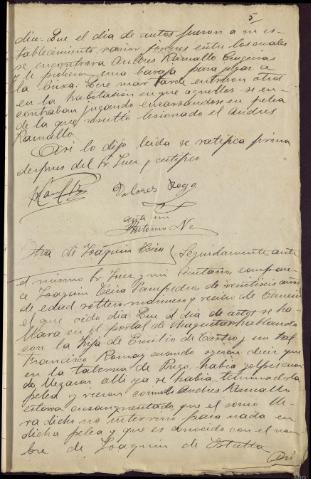 5
dia. Que el dia de autos fueron a su es-
tablecimiento varios jovenes entre los cuales
se encontraba Andres Ramallo
y le pidieron una baraja para jugar a
la brisca. Que mas tarde entraron otros
en la habitacion en que aquellos se en-
contraban jugando enzarzandose en pelea
de la que resultó lesionado el Andres
Ramallo.
Asi lo dijo, leida se ratifica firma
despues del Sr. Juez y certifico
Dolores Rego
Ante mi
Antonio
Otra de Joaquin Seguidamente ante
el mismo Sr. Juez y mi Secretario compare-
ce Joaquin de veintiseis años
de edad soltero y vecino de
el que pido dia. Que el dia de autos se ha-
llaba en el portal de hablando
con la hija de Emilio de Castro, y un tal
Francisco Ramos, cuando oyeron decir que
en la taberna de Rego, habia golpes cuan-
do llegaron alli ya se habia terminado la
pelea y vieron como el Andres Ramallo
estaba ensangrentado que el como lle-
va dicho no intervino para nada en
dicha pelea y que es conocido con el nom-
bre de Joaquin de
Asi